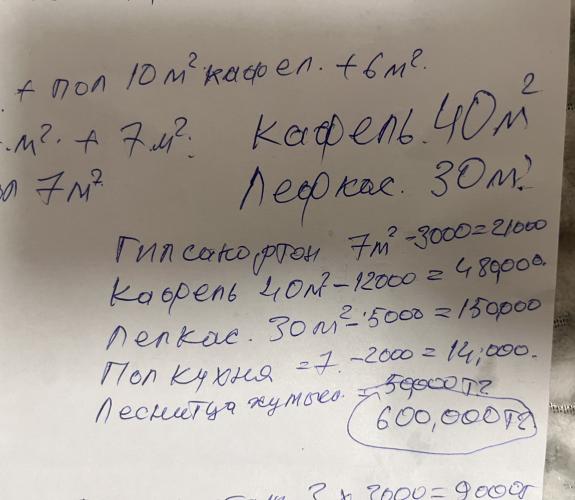 + пол 10м² кафел. + 6м².
м². + 7м².
Кафель. 40м²
7м²
Лефкас. 30м².
Гипсакортон 7м² - 3000 = 21000
Кафель 40м² - 12000 = 480000.
Лепкас. 30м² - 5000 = 150000
Пол кухня = 7. - 2000 = 14,000.
Леснитца = 50000 тг
600,000 тг
3 х 3000 = 9000т